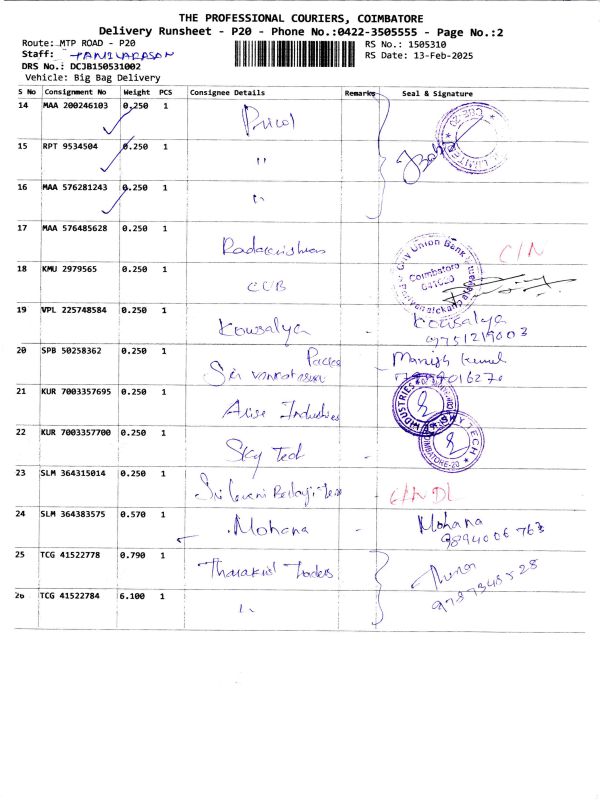 THE PROFESSIONAL COURIERS, COIMBATORE
Delivery Runsheet - P20 - Phone No.:0422-3505555 - Page No.:2
Route: MTP ROAD - P20
RS No.: 1505310
Staff:
RS Date: 13-Feb-2025
DRS No.: DCJB150531002
Vehicle: Big Bag Delivery
S No Consignment No Weight PCS Consignee Details Remarks Seal & Signature
14 MAA 200246103 0.250 1 Pricol
15 RPT 9534504 0.250 1 "
16 MAA 576281243 0.250 1 "
17 MAA 576485628 0.250 1 Radakrishnan C/N
City Union Bank
Coimbatore
641020
18 KMU 2979565 0.250 1 CUB
19 VPL 225748584 0.250 1 Kowsalya - Kowsalya
9751219003
20 SPB 50258362 0.250 1 Sri Packs - Manish
21 KUR 7003357695 0.250 1 Arise Industries
INDUSTRIES
22 KUR 7003357700 0.250 1 Sky Tech -
SKY TECH
COIMBATORE-20
23 SLM 364315014 0.250 1 Sri -
24 SLM 364383575 0.570 1 Mohana - Mohana
9894006763
25 TCG 41522778 0.790 1 Traders
9787345528
26 TCG 41522784 6.100 1 "